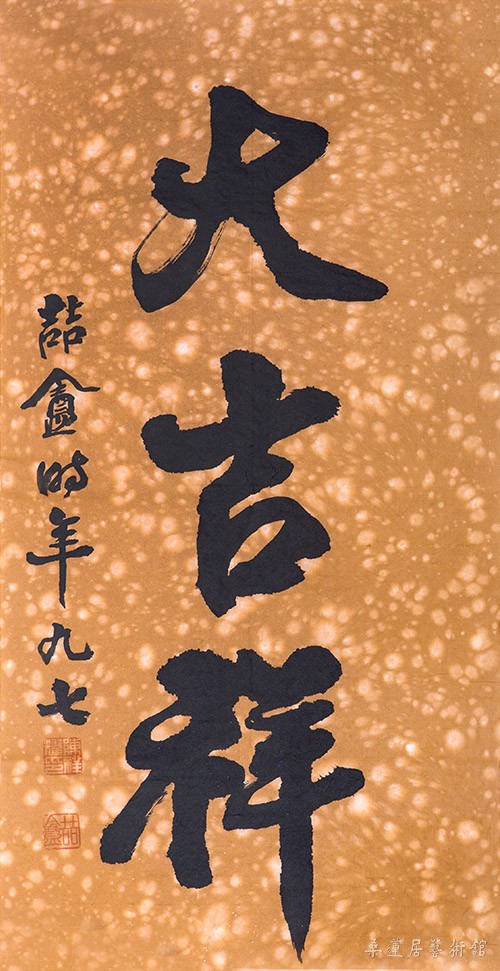 大吉祥
喆盦時年九七
喆盦
桑蓮居藝術館